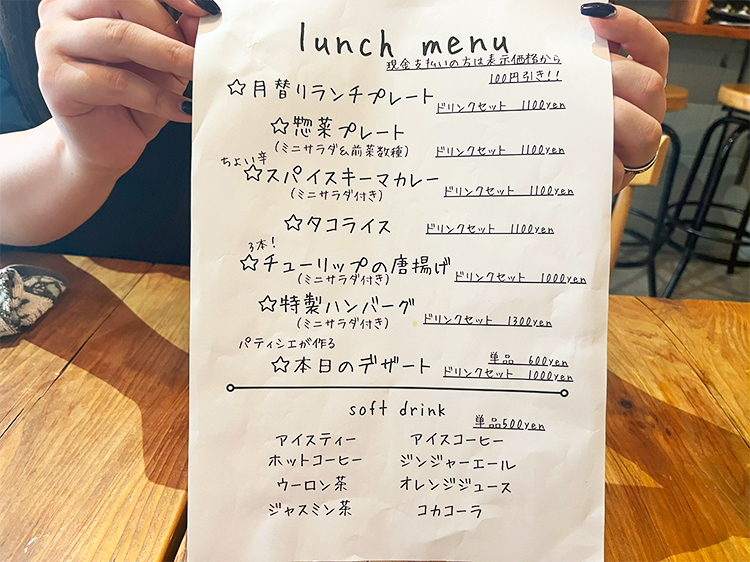 lunch menu
現金支払いの方は表示価格から
100円引き!!
☆月替りランチプレート ドリンクセット 1100yen
☆惣菜プレート
(ミニサラダ&前菜数種) ドリンクセット 1100yen
ちょい辛
☆スパイスキーマカレー
(ミニサラダ付き) ドリンクセット 1100yen
☆タコライス ドリンクセット 1100yen
3本!
☆チューリップの唐揚げ
(ミニサラダ付き) ドリンクセット 1000yen
☆特製ハンバーグ
(ミニサラダ付き) ドリンクセット 1300yen
パティシエが作る
☆本日のデザート 単品 600yen
ドリンクセット 1000yen
soft drink
単品500yen
アイスティー アイスコーヒー
ホットコーヒー ジンジャーエール
ウーロン茶 オレンジジュース
ジャスミン茶 コカコーラ